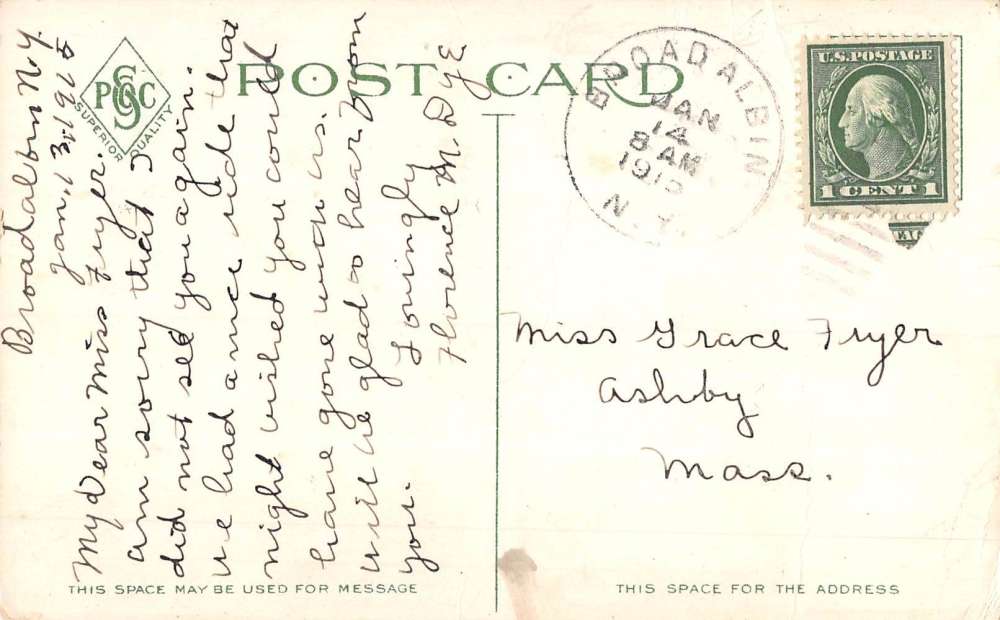 POST CARD
SGC
P C
SUPERIOR QUALITY
Broadalbin N.Y.
Jan, 13, 1915
My Dear Miss Fryer. I
am sorry that I
did not see you again.
We had a nice ride that
night wished you could
have gone with us.
Will be glad to hear from
you.
Lovingly
Florence M. Dye
THIS SPACE MAY BE USED FOR MESSAGE
BROADALBIN
JAN
14
8 AM
1915
N.Y.
U.S. POSTAGE
1 CENT 1
Miss Grace Fryer
Ashby
Mass.
THIS SPACE FOR THE ADDRESS